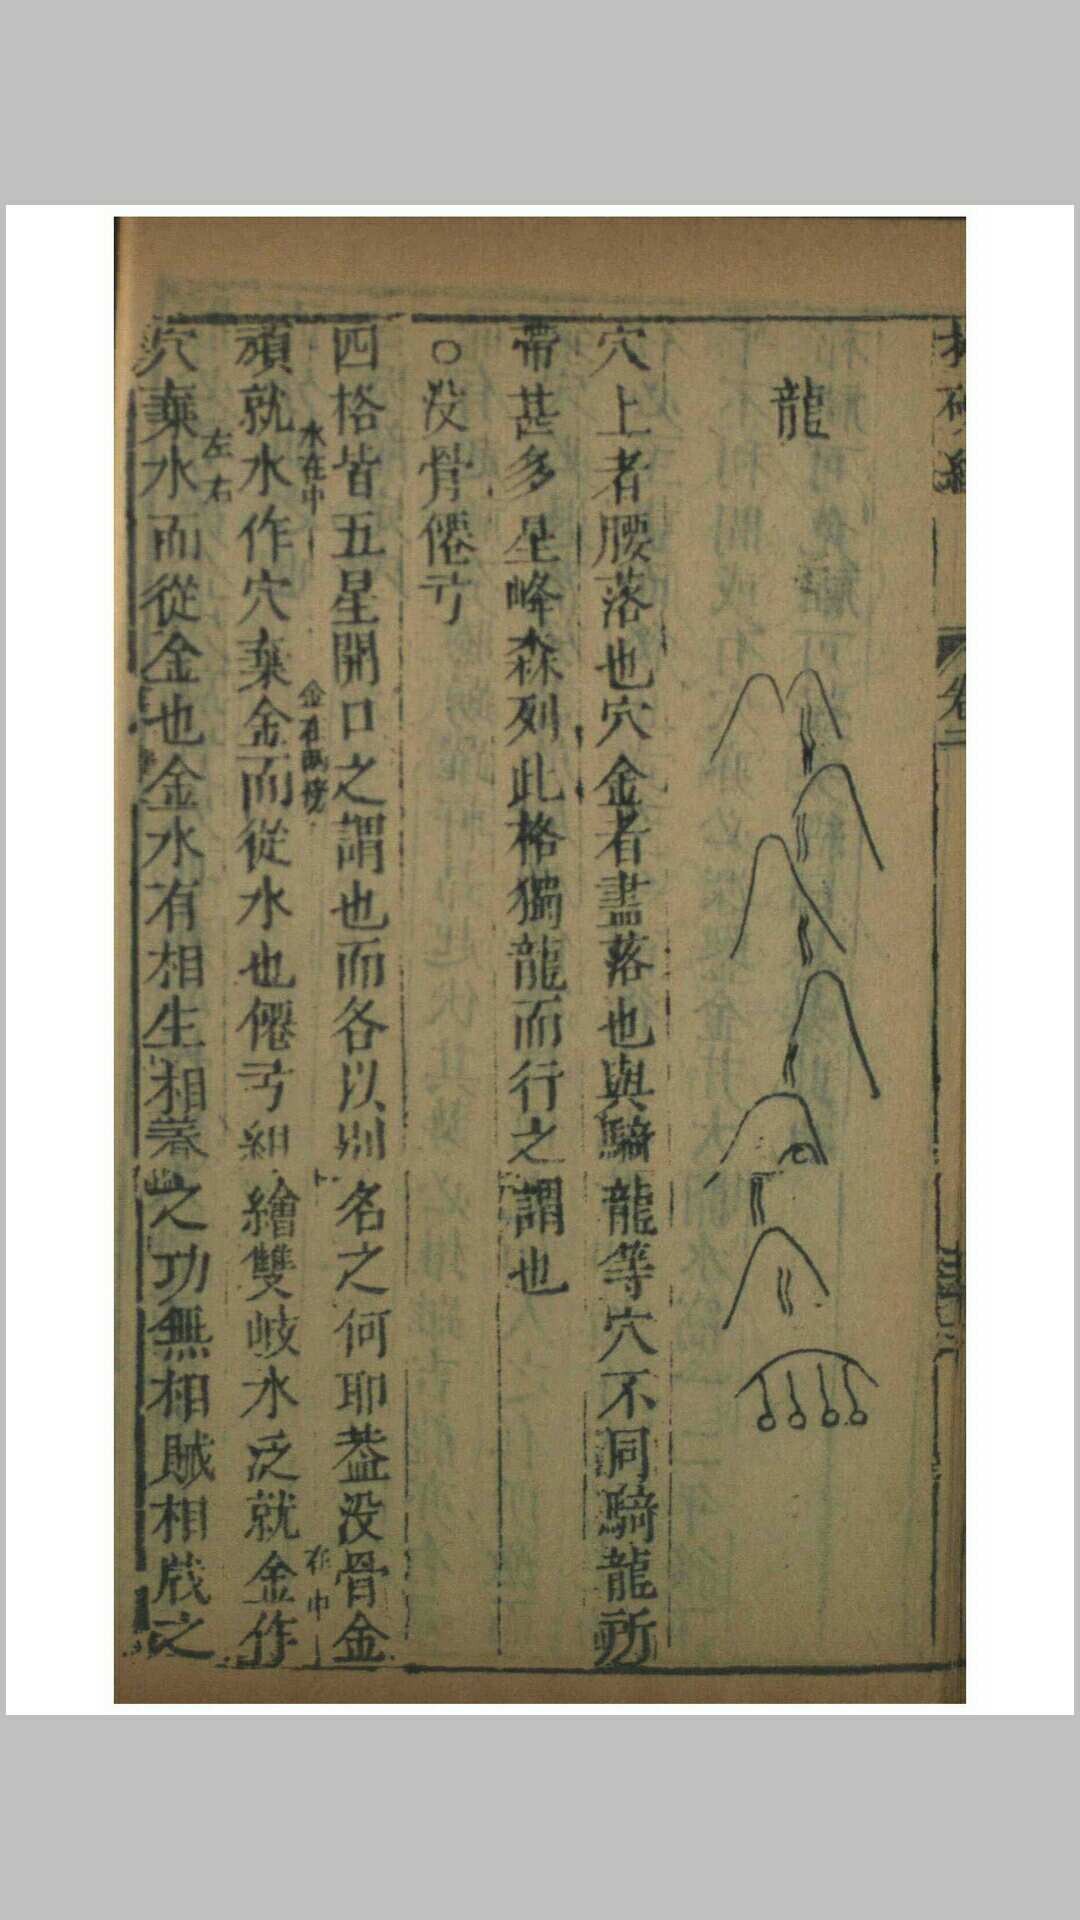 卷二
龍
穴上者腰落也穴金者盡落也與騎龍等穴不同騎龍所
帶甚多星峰森列此格獨龍而行之謂也
○没骨僊亏
四格皆五星開口之謂也而各以别名之何耶葢没骨金
水在中 金在兩傍 在中
頑就水作穴棄金而從水也僊亏組繪雙岐水泛就金作
左右
穴棄水而從金也金水有相生相養之功無相賊相戕之